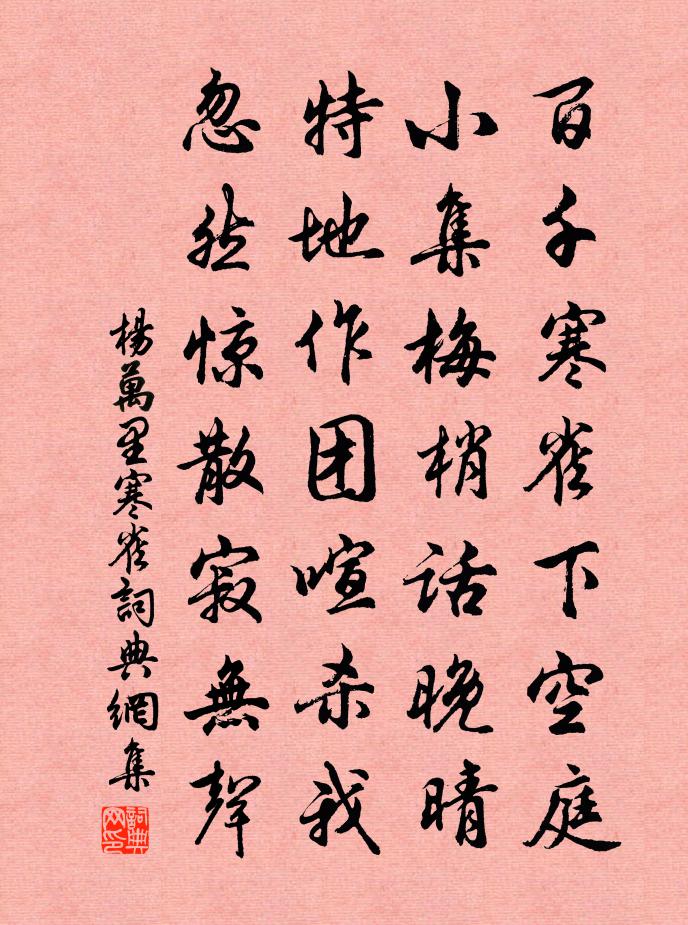 百千寒雀下空庭
小集梅梢話晚晴
特地作团喧杀我
忽然惊散寂無聲
楊萬里寒雀詞典網集
詞典网印